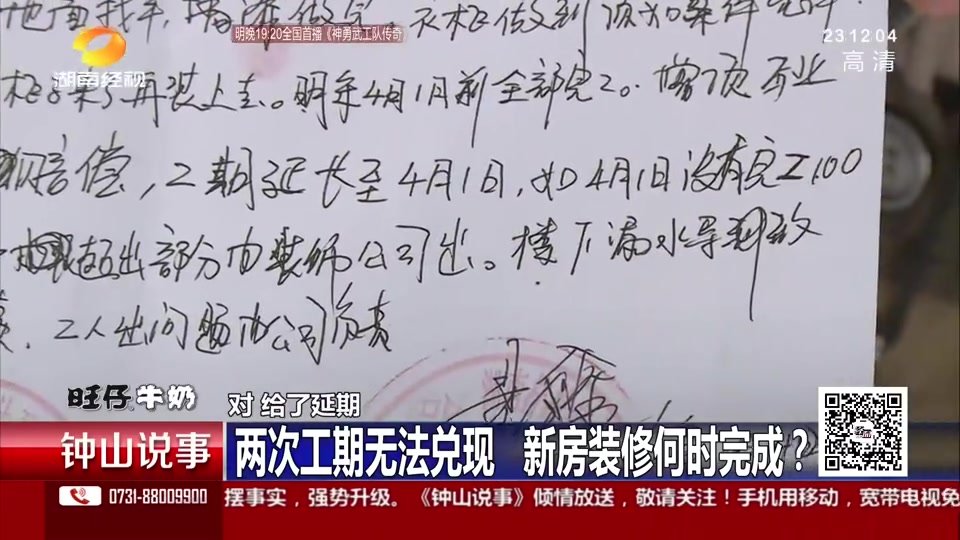 明晚19:20全国首播《神勇武工队传奇
23:12:04
湖南经视
高清
再装上去。明年4月1月前全部完工.
赔偿,工期延长至4月1日,如4月1日没有完工100
超出部分由装饰公司出。楼下漏水导致
工人出问题由公司负责
旺仔牛奶
对 给了延期
钟山说事
两次工期无法兑现 新房装修何时完成?
0731-88009900
摆事实,强势升级。《钟山说事》倾情放送,敬请关注!手机用移动,宽带电视免